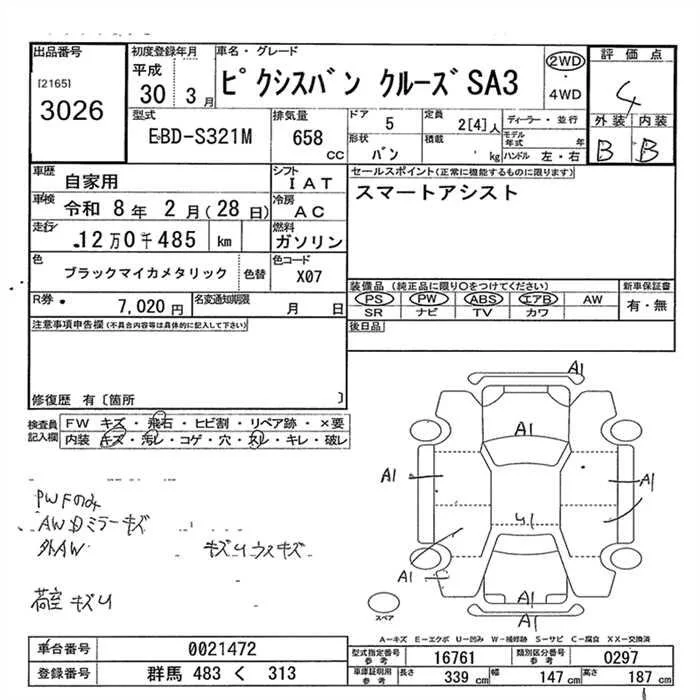 出品番号
[2165]
3026
初度登録年月
平成
30 3月
車名・グレード
ピクシスバン クルーズ SA3
2WD
・
4WD
評価点
4
外装 内装
B B
型式
EBD-S321M
排気量
658
CC
ドア 5
形状 バン
定員 2[4]人
積載 kg
ディーラー・並行
モデル年式 年
ハンドル 左・右
車歴 自家用
シフト IAT
車検 令和 8年 2月(28日)
冷房 AC
走行 12万0千485 km
燃料 ガソリン
色 ブラックマイカメタリック 色替
色コード X07
R券 7,020円
名変通知期限 月 日
セールスポイント(正常に機能するものに限ります)
スマートアシスト
装備品(純正品に限り○をつけてください)
PS PW ABS エアB AW
SR ナビ TV カワ
新車保証書
有・無
後日品
注意事項申告欄(不具合内容等は具体的に記入して下さい)
修復歴 有〔箇所 〕
検査員記入欄
FW キズ・飛石・ヒビ割・リペア跡・×要
内装 キズ・汚レ・コゲ・穴・スレ・キレ・破レ
PWFのみ
AWDミラーキズ
外AW
キズUウスキズ
荷室キズU
A1
A1
A1
A1
A1
A1
A1
A1
スペア
A−キズ E−エクボ U−凹み W−補修跡 S−サビ C−腐食 XX−交換済
車台番号 0021472
登録番号 群馬 483 く 313
型式指定番号 参考 16761
類別区分番号 参考 0297
車庫証明用 参考 長さ 339 cm 幅 147 cm 高さ 187 cm